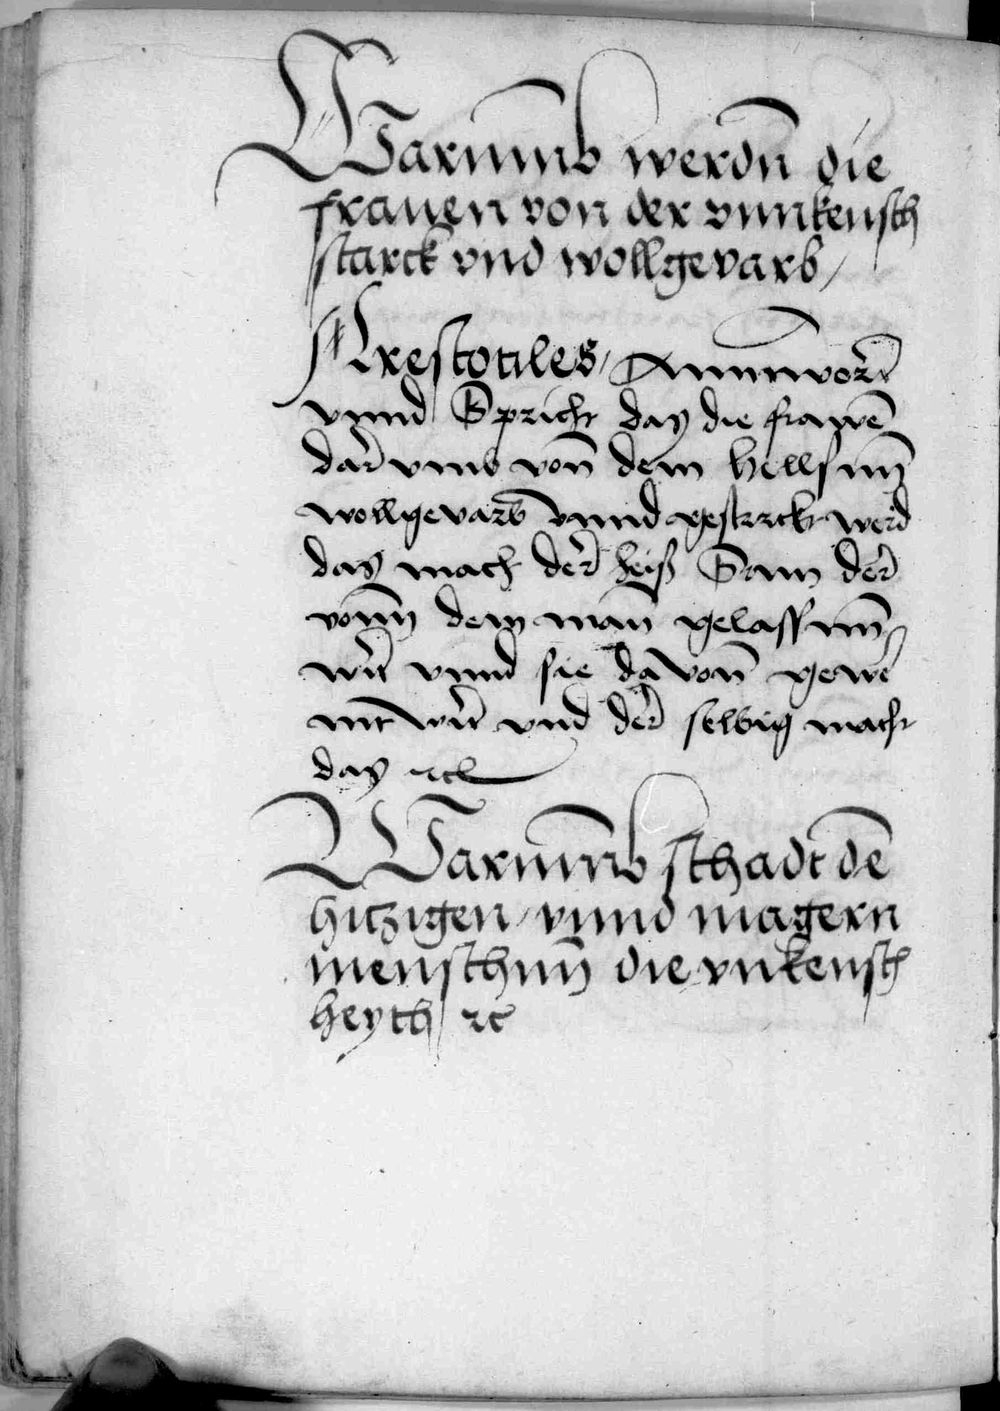 Warumb werdn̄ die
frauen von der vnnkeusch
starck vnd wollgevarb /
Arestotiles / Anntwort
vnnd Spricht das die frawē
dar vmb von dem
wollgevarb vnnd gesterckt werd
das mach der heiß Sam der
vonn dem man gelassenn
wirt vnnd sie da von
wirt vnd der selbig macht
das ꝛc
Warumb schadt dē
hitzigen / vnnd magern
menschenn die vnkeusch
heyth ꝛc